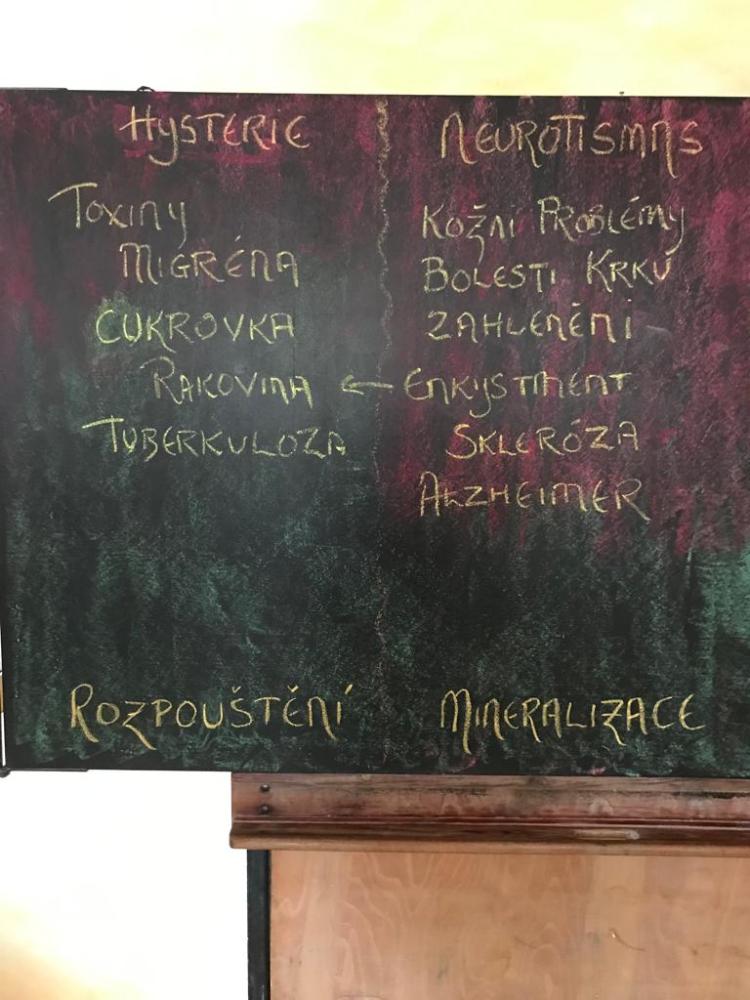 HYSTERIE
TOXINY
MIGRÉNA
CUKROVKA
RAKOVINA
TUBERKULOZA
ROZPOUŠTĚNÍ
NEUROTISMNS
KOŽNI PROBLÉMY
BOLESTI KRKU
ZAHLENĚNI
← ENKYSTMENT
SKLERÓZA
ALZHEIMER
MINERALIZACE